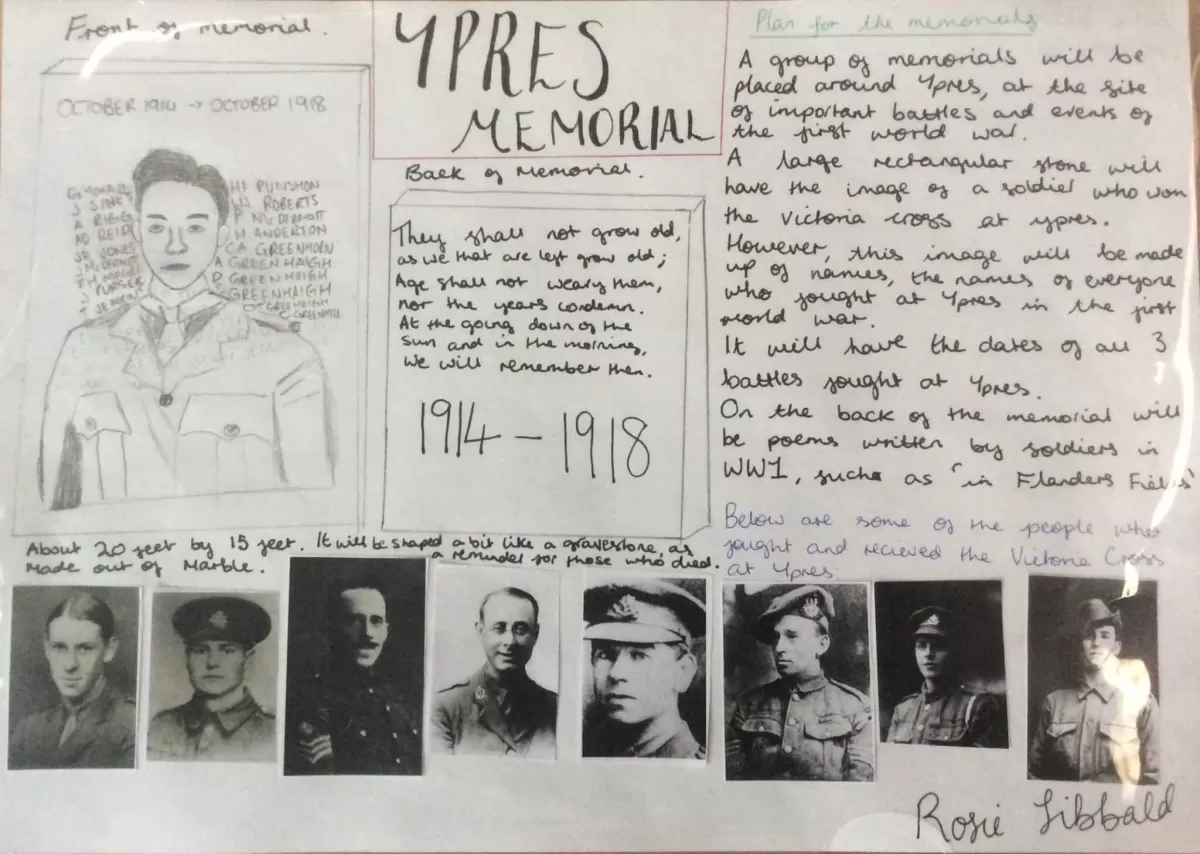 Front of memorial.
OCTOBER 1914 → OCTOBER 1918
J SIMES
A RIGG
AD REID
JE JONES
J McDERMOTT
J PURSER
HF PUNSHON
W ROBERTS
P McDERMOTT
H ANDERTON
CA GREENHORN
A GREENHAIGH
P GREENHAIGH
GREENHAIGH
GREENHAIGH
C GREENHILL
YPRES
MEMORIAL
Back of Memorial.
They shall not grow old,
as we that are left grow old;
Age shall not weary them,
nor the years condemn.
At the going down of the
Sun and in the morning,
We will remember them.
1914 – 1918
About 20 feet by 15 feet. It will be shaped a bit like a gravestone, as
a reminder for those who died.
Made out of Marble.
Plan for the memorials
A group of memorials will be
placed around Ypres, at the site
of important battles and events of
the first world war.
A large rectangular stone will
have the image of a soldier who won
the Victoria cross at ypres.
However, this image will be made
up of names, the names of everyone
who fought at Ypres in the first
world war.
It will have the dates of all 3
battles fought at Ypres.
On the back of the memorial will
be poems written by soldiers in
WW1, suchas as 'in Flanders Fields'
Below are some of the people who
fought and recieved the Victoria Cross
at Ypres.
Rosie Sibbald